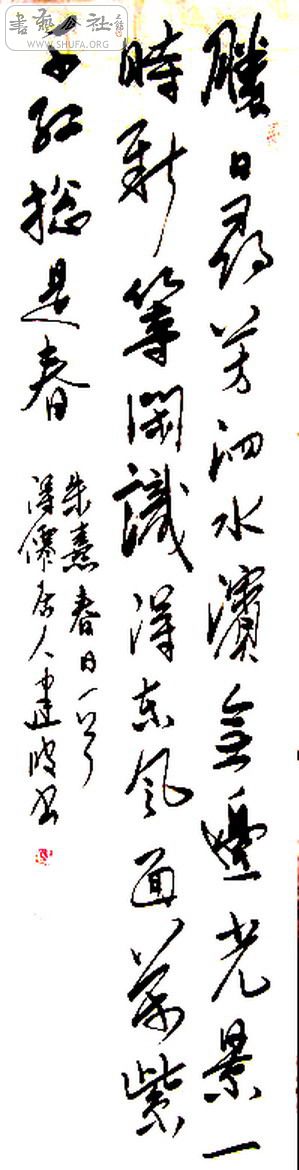 勝日尋芳泗水濱無邊光景一
時新等閑識得東風面萬紫
千紅總是春
朱熹春日一首
居人建波書
書藝公社
WWW.SHUFA.ORG